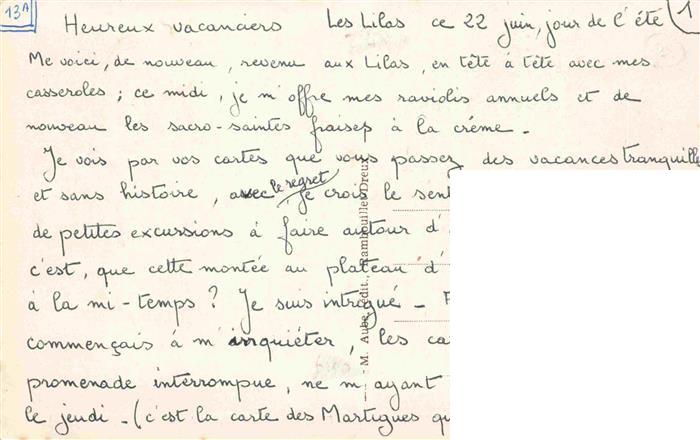 13A
1
Heureux vacanciers Les Lilas ce 22 juin, jour de l'été
Me voici, de nouveau, revenu aux Lilas, en tête à tête avec mes
casseroles ; ce midi, je m'offre mes raviolis annuels et de
nouveau les sacro-saintes fraises à la crème.
Je vois par vos cartes que vous passez des vacances tranquill
et sans histoire, avec le regret je crois le sent
de petites excursions à faire autour d'
c'est, que cette montée au plateau d'
à la mi-temps ? Je suis intrigué -
commençais à m'inquiéter, les ca
promenade interrompue, ne m'ayant
le jeudi. (c'est la carte des Martigues qu
M. Aube, édit., Rambouillet-Dreux